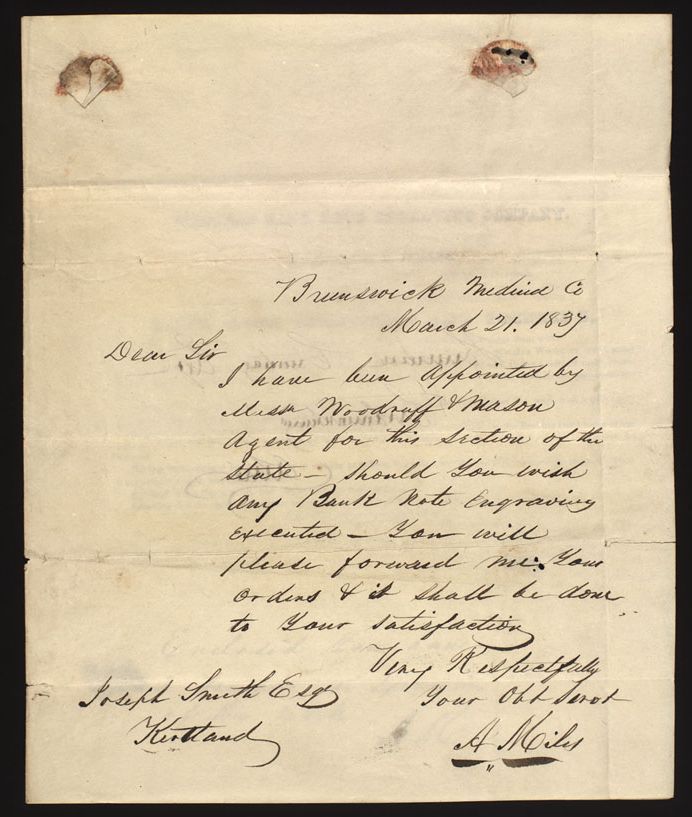 Brunswick Medina Co
March 21. 1837
Dear Sir
I have been appointed by
Messrs Woodruff & Mason
Agent for this Section of the
State — Should You wish
any Bank Note Engraving
Executed — You will
please forward me Your
orders & it shall be done
to Your satisfaction
Very Respectfully
Your Obt Servt
A Miles
Joseph Smith Esqr
Kertland